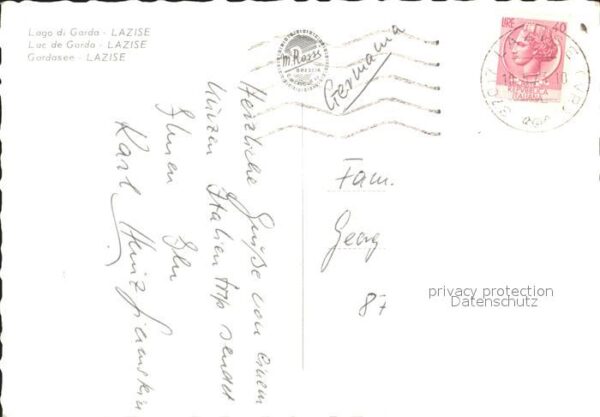 Lago di Garda - LAZISE
Lac de Garda - LAZISE
Gardasee - LAZISE
Germania
LIRE 40
REPUBBLICA
ITALIANA
Herzliche Grüße von einem
kurzen Italien trip sendet
Ihnen Ihr
Karl Heinz
Fam.
Georg
87
privacy protection
Datenschutz